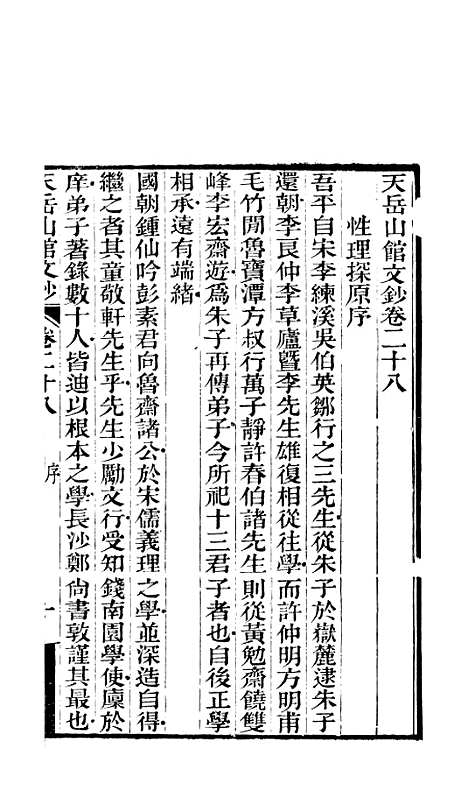 天岳山館文鈔卷二十八
性理探原序
吾平自宋李練溪吳伯英鄒行之三先生從朱子於嶽麓逮朱子
還朝李艮仲李草廬暨李先生雄復相從往學而許仲明方明甫
毛竹閒魯寶潭方叔行萬子靜許春伯諸先生則從黃勉齋饒雙
峰李宏齋遊爲朱子再傳弟子今所祀十三君子者也自後正學
相承遠有端緒
國朝鍾仙吟彭素君向魯齋諸公於宋儒義理之學並深造自得
繼之者其童敬軒先生乎先生少勵文行受知錢南園學使廩於
庠弟子著錄數十人皆迪以根本之學長沙鄭尙書敦謹其最也
天岳山館文鈔 卷二十八 序 一